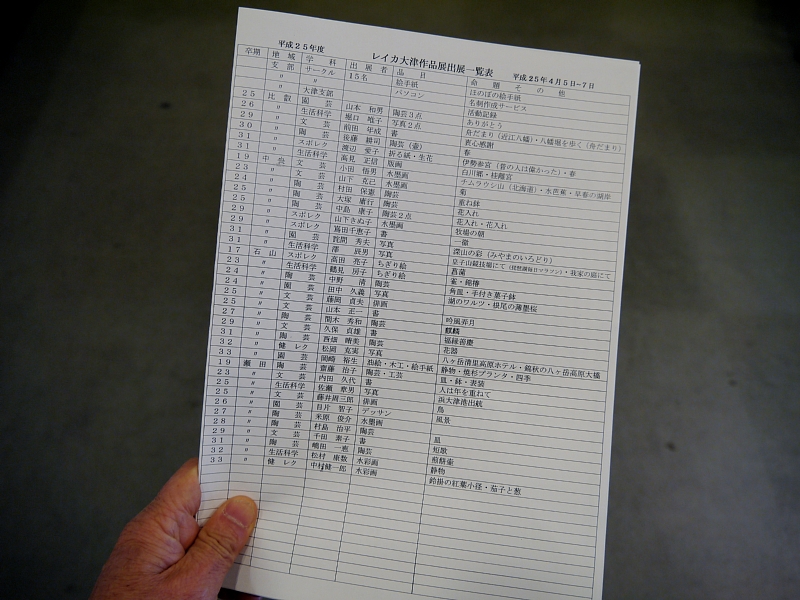 平成25年度　レイカ大津作品展出展一覧表　平成25年4月5日−7日
卒期　地域　学科　出展者　品目　命題その他
支部　サークル　15名　絵手紙　ほのぼの絵手紙
〃　大津支部　パソコン　名刺作成サービス
〃　活動記録
25　比叡　園芸　山本和男　陶芸3点　ありがとう
26　〃　生活科学　堀口唯子　写真2点　舟だまり（近江八幡）・八幡堀を歩く（舟だまり）
29　〃　文芸　前田年成　書　衷心感謝
30　〃　陶芸　後藤綱司　陶芸（壷）　春
31　〃　スポレク　渡辺愛子　折る紙・生花　伊勢参宮（昔の人は偉かった）・春
31　〃　生活科学　高見正信　版画　白川郷・桂離宮
19　中央　文芸　小田悟男　水墨画　チムラウシ山（北海道）・水芭蕉・早春の湖岸
23　〃　文芸　山下克己　水墨画　菊
24　〃　陶芸　村田保憲　陶芸　重ね鉢
25　〃　陶芸　大塚康行　陶芸　花入れ
25　〃　陶芸　中島康子　陶芸2点　花入れ・花入れ
29　〃　スポレク　山下きぬ子　水墨画　牧場の朝
29　〃　スポレク　蔦田千恵子　書　一徹
31　〃　園芸　我間秀夫　写真　深山の彩（みやまのいろどり）
31　〃　生活科学　澤辰男　写真
17　石山　スポレク　高田亮子　ちぎり絵　菖蒲
23　〃　生活科学　鶴見房子　ちぎり絵　雀・錦椿
24　〃　陶芸　中野清　陶芸　角皿・手付き菓子鉢
24　〃　園芸　田中久義　写真　湖のワルツ・根尾の薄墨桜
25　〃　文芸　藤岡貞夫　俳画
25　〃　文芸　山本正一　書　吟風弄月
27　〃　陶芸　関木秀和　陶芸　麒麟
29　〃　文芸　久保貞雄　書　福縁善慶
31　〃　陶芸　西畑晴美　陶芸　花器
32　〃　健レク　松岡克実　写真　八ヶ岳清里高原ホテル・錦秋の八ヶ岳高原大橋
33　〃　園芸　岡崎裕生　油絵・木工・絵手紙　静物・焼杉プランタ・四季
19　瀬田　陶芸　齋藤治子　陶芸・工芸　皿・鉢・表装
23　〃　文芸　内田久代　書　人は年を重ねて
25　〃　生活科学　佐瀬章男　写真　浜大津港出航
25　〃　文芸　藤井周三郎　俳画　鳥
26　〃　園芸　目片智子　デッサン　風景
27　〃　陶芸　米原俊介　水墨画
28　〃　陶芸　村島治平　陶芸　皿
29　〃　文芸　千田素子　書　短歌
31　〃　陶芸　嶋田一恵　陶芸　煎餅壷
32　〃　生活科学　松村康数　水彩画　静物
33　〃　健レク　中村健一郎　水彩画　鈴掛の紅葉小径・茄子と葱